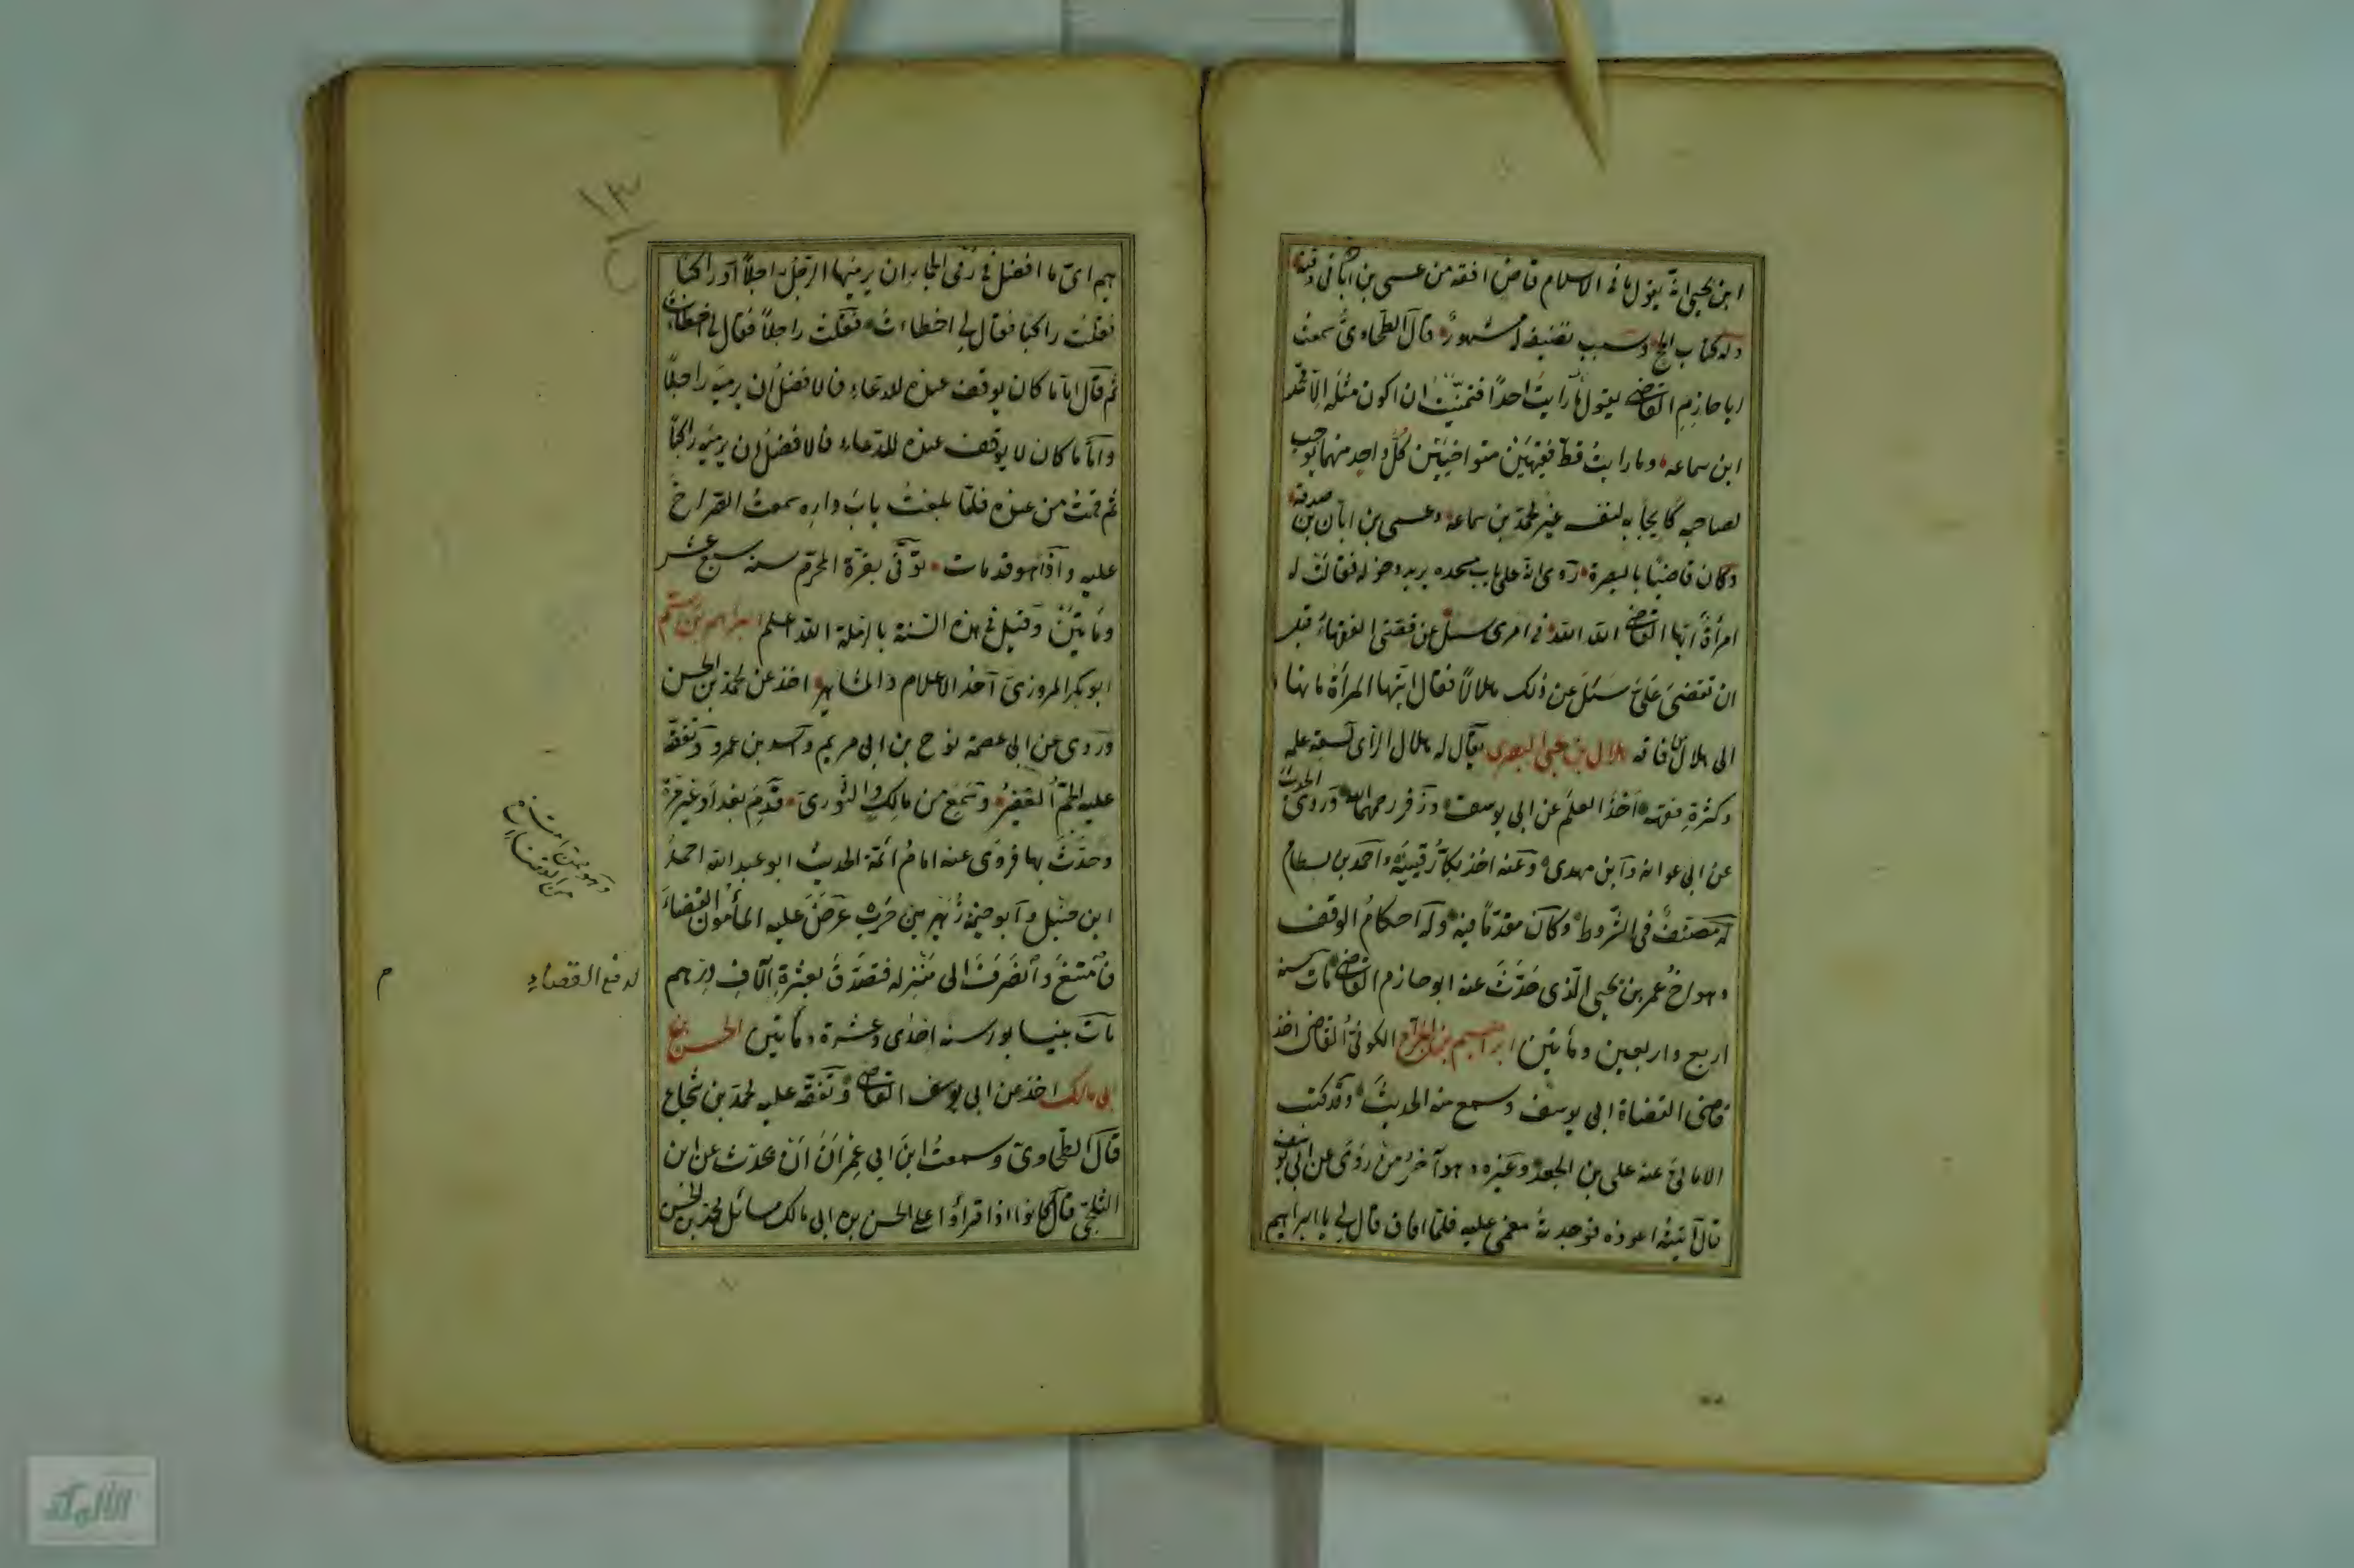 ابن يحيى انه يقول ما فى الاسلام قاض افقه من عيسى بن ابان فى وقته
وله كتاب الحج وسبب تصنيفه له مشهور قال الطحاوى سمعت
ابا حازم القاضى يقول ما رايت احدا فتمنيت ان اكون مثله الا محمد
ابن سماعه وما رايت قط فقيهين متواخيين كل واحد منهما يوجب
لصاحبه كايجابه لنفسه غير محمد بن سماعه وعيسى بن ابان بن صدقة
وكان قاضيا بالبصرة روى انه على باب مسجده يريد دخوله فقالت له
امرأة ايها القاضى الله الله فى امرى سئل عن قصتى الفقهاء قبل
ان تقضى على سئل عن ذلك هلالا فقال ايتها المرأة ما بنا
الى هلال فاقه هلال بن يحيى البصرى يقال له هلال الرأى لسعة علمه
وكثرة فقهه اخذ العلم عن ابى يوسف وزفر رحمهما الله وروى الحديث
عن ابى عوانه وابن مهدى وعنه اخذ بكار قتيبة واحمد بن بسطام
له مصنف فى الشروط وكان مقدما فيه وله احكام الوقف
وهو اخ عمر بن يحيى الذى حدث عنه ابو حازم القاضى مات سنه
اربع واربعين ومأتين ابراهيم بن الجراح الكوفى القاضى اخذ
قاضى القضاة ابى يوسف وسمع منه الحديث وقد كتب
الامالى عنه على بن الجعد وغيره وهو آخر من روى عن ابى يوسف
قال اتيته اعوده فوجدته مغمى عليه فلما افاق قال لى يا ابراهيم
١٣
هيم اى ما افضل فى رمى الجمار ان يرميها الرجل راجلا او راكبا
فقلت راكبا فقال لى اخطاءت فقلت راجلا فقال لى اخطاءت
ثم قال اما ما كان يوقف عنده للدعاء فالافضل ان يرميه راجلا
واما ما كان لا يوقف عنده للدعاء فالافضل ان يرميه راكبا
ثم قمت من عنده فلما بلغت باب داره سمعت الصراخ
عليه واذا هو قد مات توفى بغرة المحرم سنه سبع عشر
ومأتين وقيل فى هذه السنة بالرملة الله اعلم ابراهيم بن رستم
ابو بكر المروزى احد الاعلام والمشاهير اخذ عن محمد بن الحسن
وروى عن ابى عصمة نوح بن ابى مريم واسد بن عمرو وتفقه
عليه الجم الغفير وسمع من مالك والثورى قدم بغداد غير مرة
وحدث بها فروى عنه امام ائمة الحديث ابو عبد الله احمد
ابن حنبل وابو خيثمة زهير بن حرب عرض عليه المأمون القضاء
فامتنع وانصرف الى منزله فتصدق بعشرة آلاف درهم
لدفع القضاء
م
مات بنيسابور سنه احدى وعشرة ومأتين الحسن بن
ابى مالك اخذ عن ابى يوسف القاضى وتفقه عليه محمد بن شجاع
قال الطحاوى وسمعت ابن ابى عمران ان يحدث عن ابن
الثلجى قال كانوا اذا قرأوا على الحسن بن ابى مالك مسائل محمد بن الحسن
الألوكة